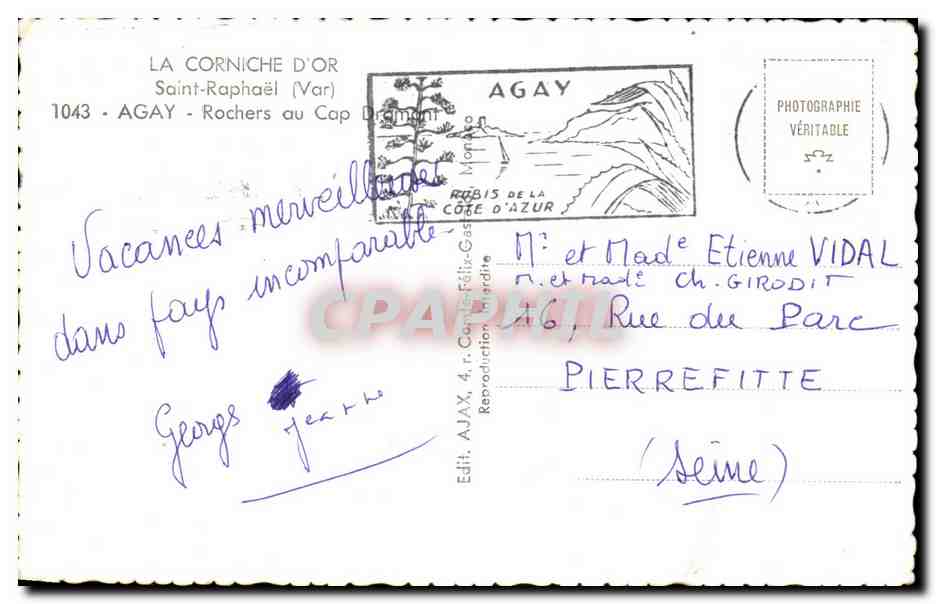 LA CORNICHE D'OR
Saint-Raphaël (Var)
1043 - AGAY - Rochers au Cap Dramont
AGAY
RUBIS DE LA
CÔTE D'AZUR
PHOTOGRAPHIE
VÉRITABLE
Vacances merveilleuses
dans pays incomparable
Georgs Jeanne
Edit. AJAX, 4, r. Comte-Félix-Gastaldi, Monaco
Reproduction Interdite
Mr et Made Etienne VIDAL
M. et Made Ch. GIRODIT
16, Rue du Parc
PIERREFITTE
(Seine)
CPARPHIL